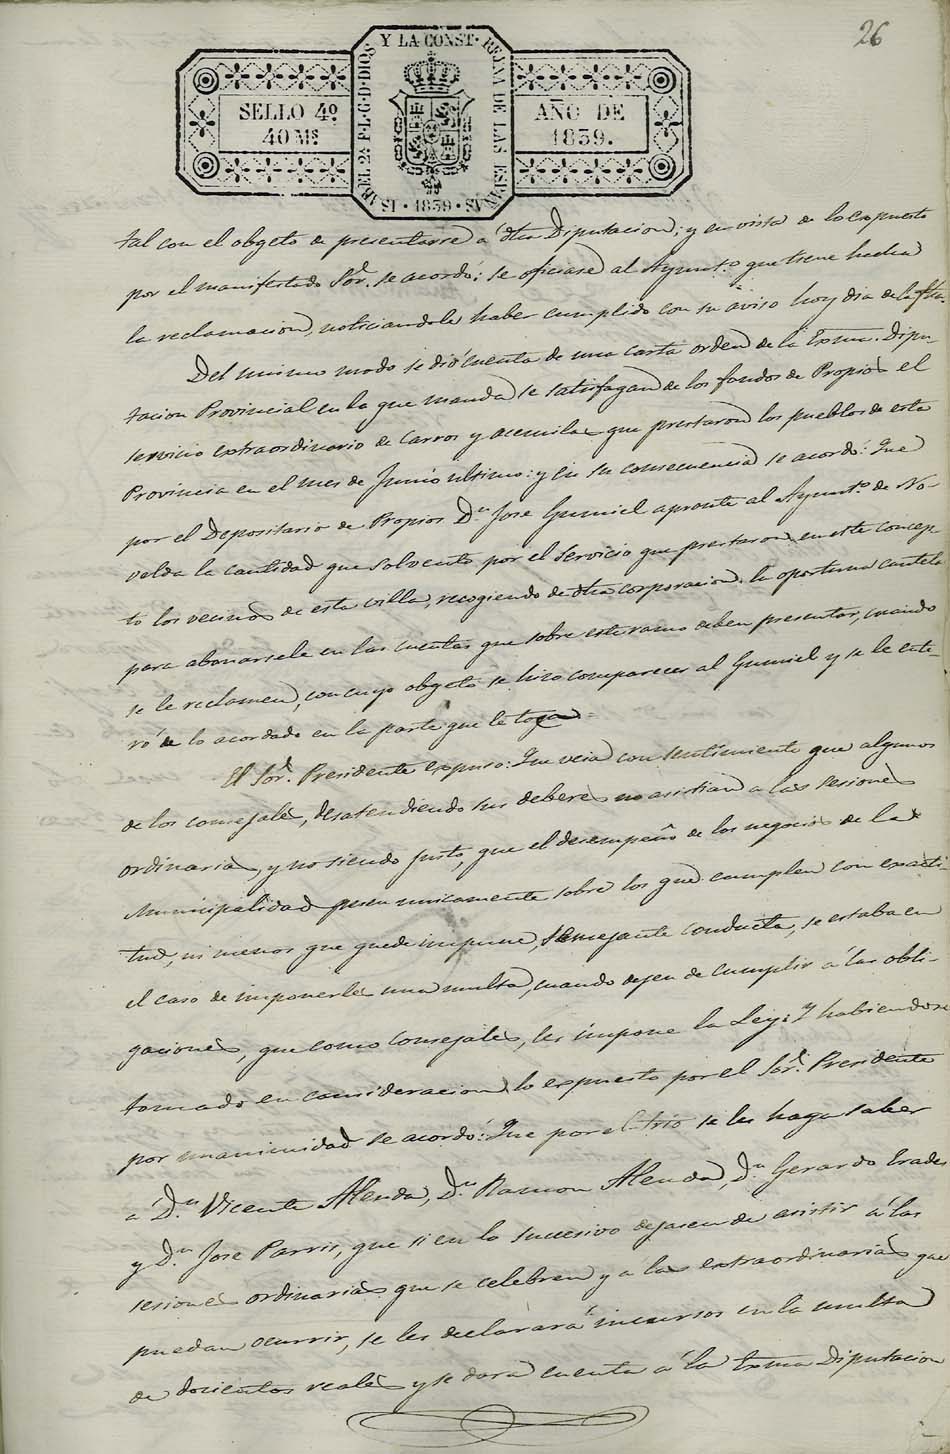 26
SELLO 4º
40 Ms
Y LA CONST. REYNA DE LAS ESPAÑAS
ISABEL 2ª P.L.G.D.DIOS
· 1839 ·
AÑO DE
1839.
tal con el obgeto de presentarse á dha Diputacion; y en vista de lo expuesto
por el manifestado Sor. se acordó: se oficiase al Ayuntº. que tiene hecha
la reclamacion, noticiandole haber cumplido con su aviso hoy dia de la fha.
Del mismo modo se dió cuenta de una carta orden de la Exma. Dipu-
tacion Provincial en la que manda se satisfagan de los fondos de Propios el
servicio extraordinario de Carros y acemilas que prestaron los pueblos de esta
Provincia en el mes de Junio ultimo: y en su consecuencia se acordó: Que
por el Depositario de Propios Dn. Jose Gumiel apronte al Ayuntº. de No-
velda la cantidad que solvento por el Servicio que prestaron en este concep-
to los vecinos de esta villa, recogiendo de dha corporacion la oportuna cautela
para abonarsele en las cuentas que sobre este ramo deben presentar, cuando
se le reclamen, con cuyo obgeto se hizo comparecer al Gumiel y se le ente-
ró de lo acordado en la parte que le toca =
El Sor. Presidente expuso: Que veia con sentimiento que algunos
de los consejales, desatendiendo sus deberes no asistian a las sesiones
ordinarias, y no siendo justo, que el desempeño de los negocios de la
Municipalidad pesen unicamente sobre los que cumplen con exacti-
tud, ni menos que quede impune, semejante conducta, se estaba en
el caso de imponerles una multa, cuando dejen de cumplir á las obli-
gaciones, que como Consejales, les impone la Ley: Y habiendose
tomado en consideracion lo expuesto por el Sor. Presidente
por unanimidad se acordó: Que por el Srio se les haga saber
á Dn. Vicente Alenda, Dn. Ramon Alenda, Dn. Gerardo Erades
y Dn. Jose Parris, que si en lo sucesivo dejasen de asistir á las
sesiones ordinarias que se celebren y a las extraordinarias que
puedan ocurrir, se les declarará incursos en la multa
de docientos reales y se dara cuenta á la Exma Diputacion